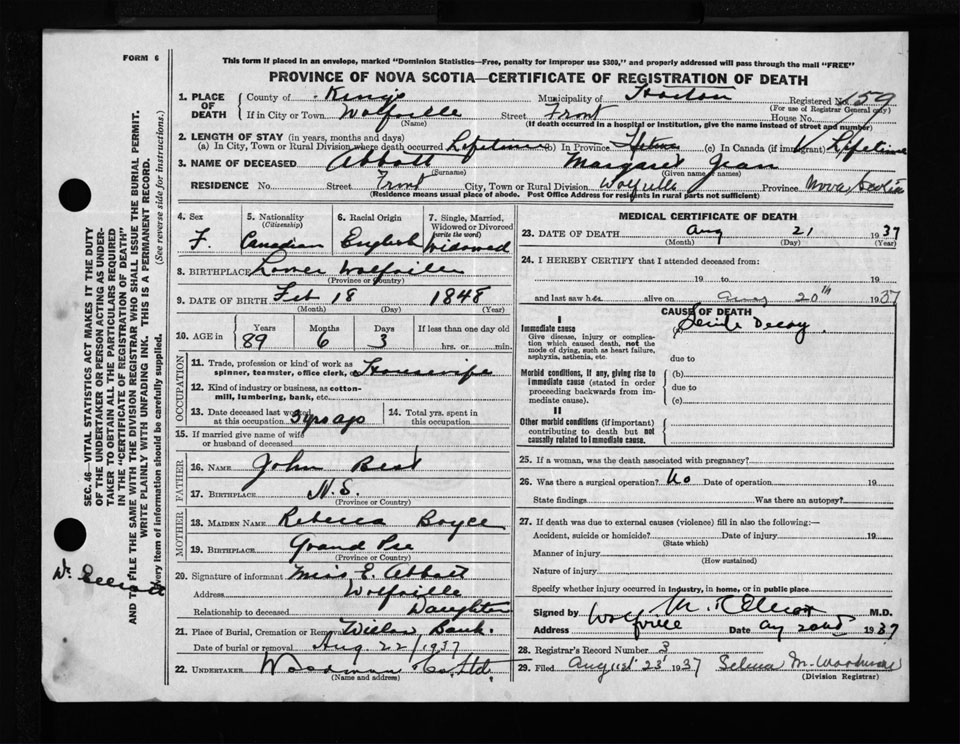 FORM 6
This form if placed in an envelope, marked "Dominion Statistics—Free, penalty for improper use $300," and properly addressed will pass through the mail "FREE"
PROVINCE OF NOVA SCOTIA—CERTIFICATE OF REGISTRATION OF DEATH
1. PLACE OF DEATH County of Kings Municipality of Horton Registered No. 159
(For use of Registrar General only)
If in City or Town Wolfville Street Front House No.
(Name) (If death occurred in a hospital or institution, give the name instead of street and number)
2. LENGTH OF STAY (in years, months and days)
(a) In City, Town or Rural Division where death occurred Lifetime (b) In Province (c) In Canada (if immigrant) Lifetime
3. NAME OF DECEASED Abbott Margaret Jean
(Surname) (Given name or names)
RESIDENCE No. Street Front City, Town or Rural Division Wolfville Province Nova Scotia
(Residence means usual place of abode. Post Office Address for residents in rural parts not sufficient)
4. Sex 5. Nationality (Citizenship) 6. Racial Origin 7. Single, Married, Widowed or Divorced (write the word)
F. Canadian English Widowed
8. BIRTHPLACE Lower Wolfville
(Province or Country)
9. DATE OF BIRTH Feb 18 1848
(Month) (Day) (Year)
10. AGE in Years Months Days If less than one day old
89 6 3 hrs. or min.
OCCUPATION
11. Trade, profession or kind of work as spinner, teamster, office clerk, etc. Housewife
12. Kind of industry or business, as cotton-mill, lumbering, bank, etc.
13. Date deceased last worked at this occupation 3 yrs ago 14. Total yrs. spent in this occupation
15. If married give name of wife or husband of deceased
FATHER
16. NAME John Best
17. BIRTHPLACE N.S.
(Province or Country)
MOTHER
18. MAIDEN NAME Rebecca Boyce
19. BIRTHPLACE Grand Pre
(Province or Country)
20. Signature of informant E. Abbott
Address Wolfville
Relationship to deceased Daughter
21. Place of Burial, Cremation or Removal Willow Bank.
Date of burial or removal Aug. 22/1937
22. UNDERTAKER Woodman Co. Ltd.
(Name and address)
MEDICAL CERTIFICATE OF DEATH
23. DATE OF DEATH Aug 21 1937
(Month) (Day) (Year)
24. I HEREBY CERTIFY that I attended deceased from:
19 to 19
and last saw her alive on Aug 20th 1937
CAUSE OF DEATH
I
Immediate cause (a) Senile Decay.
Give disease, injury or complication which caused death, not the mode of dying, such as heart failure, asphyxia, asthenia, etc.
due to
Morbid conditions, if any, giving rise to immediate cause (stated in order proceeding backwards from immediate cause).
(b)
due to
(c)
II
Other morbid conditions (if important) contributing to death but not causally related to immediate cause.
25. If a woman, was the death associated with pregnancy?
26. Was there a surgical operation? No Date of operation 19
State findings Was there an autopsy?
27. If death was due to external causes (violence) fill in also the following:—
Accident, suicide or homicide? Date of injury 19
(State which)
Manner of injury
(How sustained)
Nature of injury
Specify whether injury occurred in industry, in home, or in public place
Signed by M. R. Elliott M.D.
Address Wolfville Date Aug 22nd 1937
28. Registrar's Record Number 3
29. Filed August 23 1937 Selina M. Woodman
(Division Registrar)
SEC. 46—VITAL STATISTICS ACT MAKES IT THE DUTY
OF THE UNDERTAKER OR PERSON ACTING AS UNDER-
TAKER TO OBTAIN ALL THE PARTICULARS REQUIRED
IN THE "CERTIFICATE OF REGISTRATION OF DEATH"
AND TO FILE THE SAME WITH THE DIVISION REGISTRAR WHO SHALL ISSUE THE BURIAL PERMIT.
WRITE PLAINLY WITH UNFADING INK. THIS IS A PERMANENT RECORD.
Every item of information should be carefully supplied. (See reverse side for instructions.)